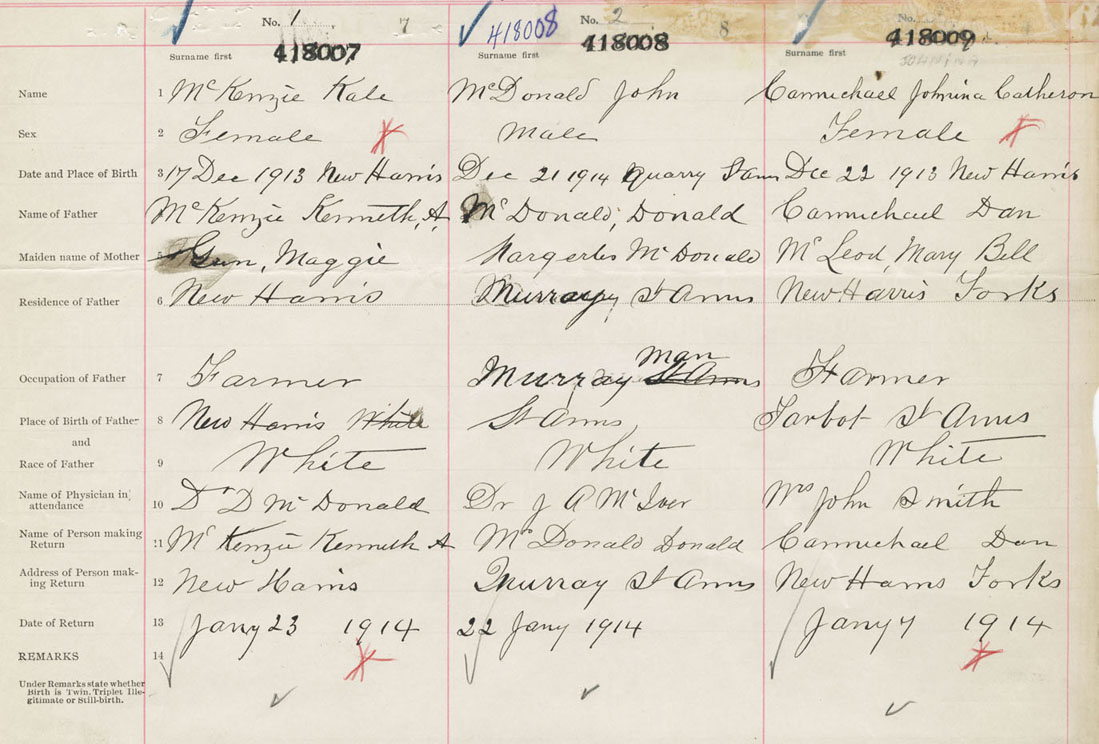 No. 1 7 No. 2 8 No.
418007 418008 418008 418009
Surname first Surname first Surname first
Name 1 McKenzie Kate McDonald John Carmichael Johnina Catheron
Sex 2 Female Male Female
Date and Place of Birth 3 17 Dec 1913 New Harris Dec 21 1914 Quarry St Anns Dec 22 1913 New Harris
Name of Father McKenzie Kenneth A. McDonald, Donald Carmichael Dan
Maiden name of Mother 5 Gun, Maggie McDonald McLeod, Mary Bell
Residence of Father 6 New Harris Murray St Anns New Harris Forks
Occupation of Father 7 Farmer Murray St Anns man Farmer
Place of Birth of Father 8 New Harris White St Anns Tarbot St Anns
and
Race of Father 9 White White White
Name of Physician in attendance 10 Dr D McDonald Dr J A McIver Mrs John Smith
Name of Person making Return 11 McKenzie Kenneth A McDonald Donald Carmichael Dan
Address of Person mak-ing Return 12 New Harris Murray St Anns New Harris Forks
Date of Return 13 Jany 23 1914 22 Jany 1914 Jany 7 1914
REMARKS 14
Under Remarks state whether
Birth is Twin, Triplet Ille-
gitimate or Still-birth.